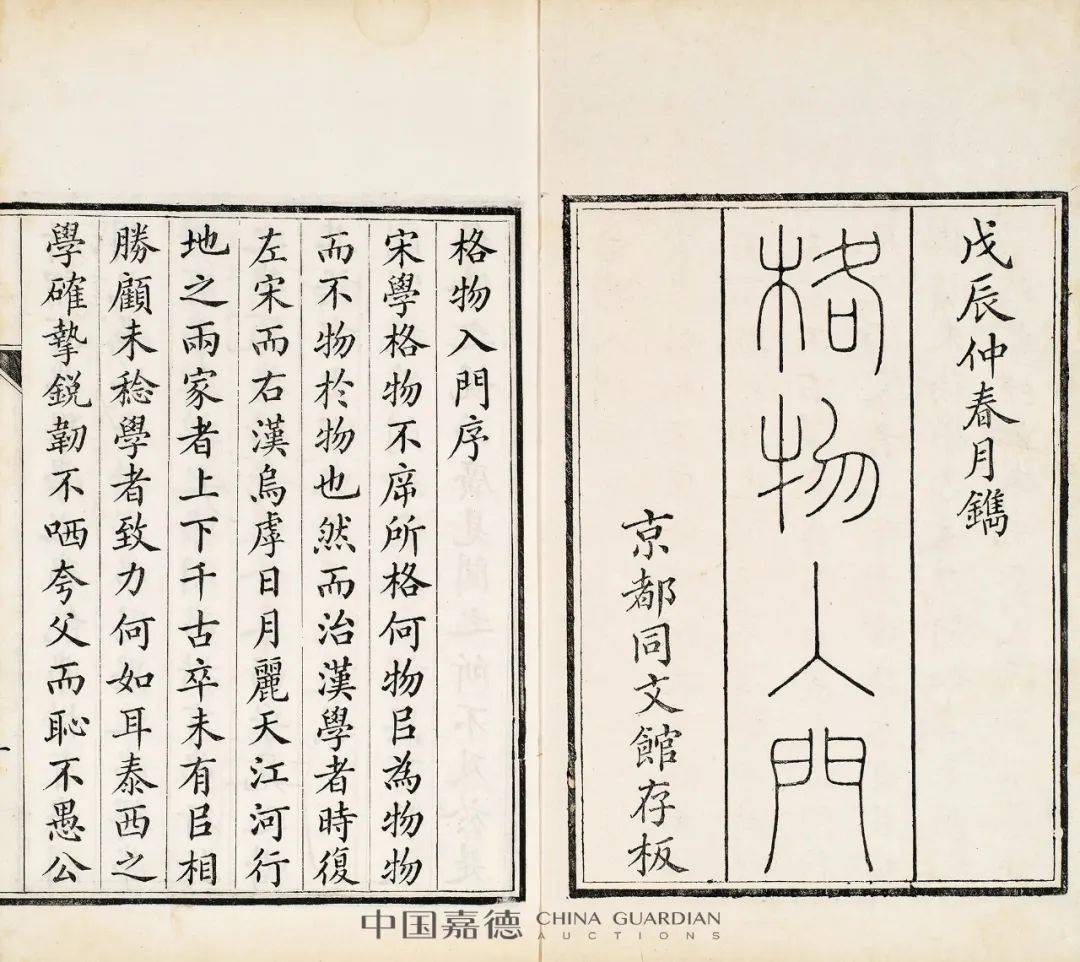 戊辰仲春月鐫
格物入門
京都同文館存板
格物入門序
宋學格物不席所格何物㠯為物物
而不物於物也然而治漢學者時復
左宋而右漢烏虖日月麗天江河行
地之兩家者上下千古卒未有㠯相
勝顧未稔學者致力何如耳泰西之
學確摯銳韌不哂夸父而恥不愚公
中国嘉德 CHINA GUARDIAN
AUCTIONS